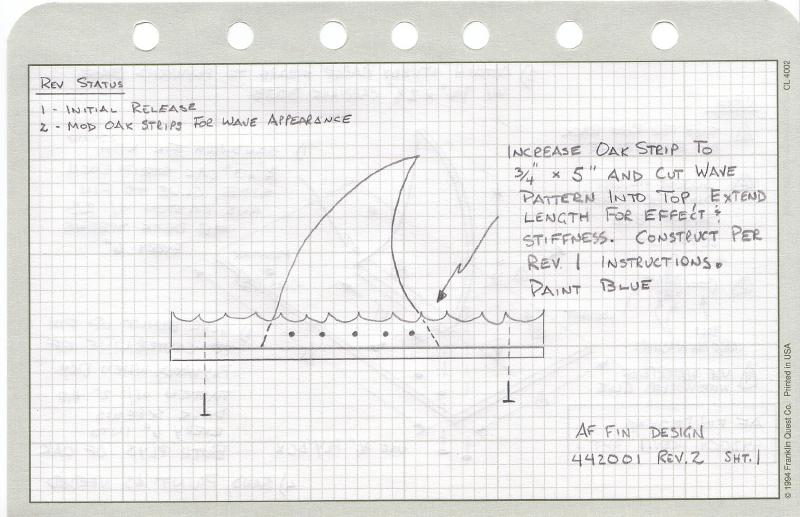 REV STATUS
1 - INITIAL RELEASE
2 - MOD OAK STRIPS FOR WAVE APPEARANCE
INCREASE OAK STRIP TO
3/4" x 5" AND CUT WAVE
PATTERN INTO TOP, EXTEND
LENGTH FOR EFFECT &
STIFFNESS. CONSTRUCT PER
REV. 1 INSTRUCTIONS.
PAINT BLUE
AF FIN DESIGN
442001 REV. 2 SHT. 1
CL 4002
© 1994 Franklin Quest Co. Printed in USA